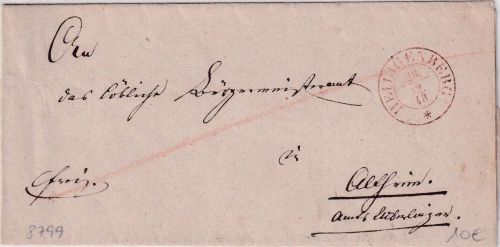 An
das löbliche Bürgermeisteramt
HEILIGENBERG
26
12
in
frei.
Altheim.
Amts Überlingen.
8799
10€